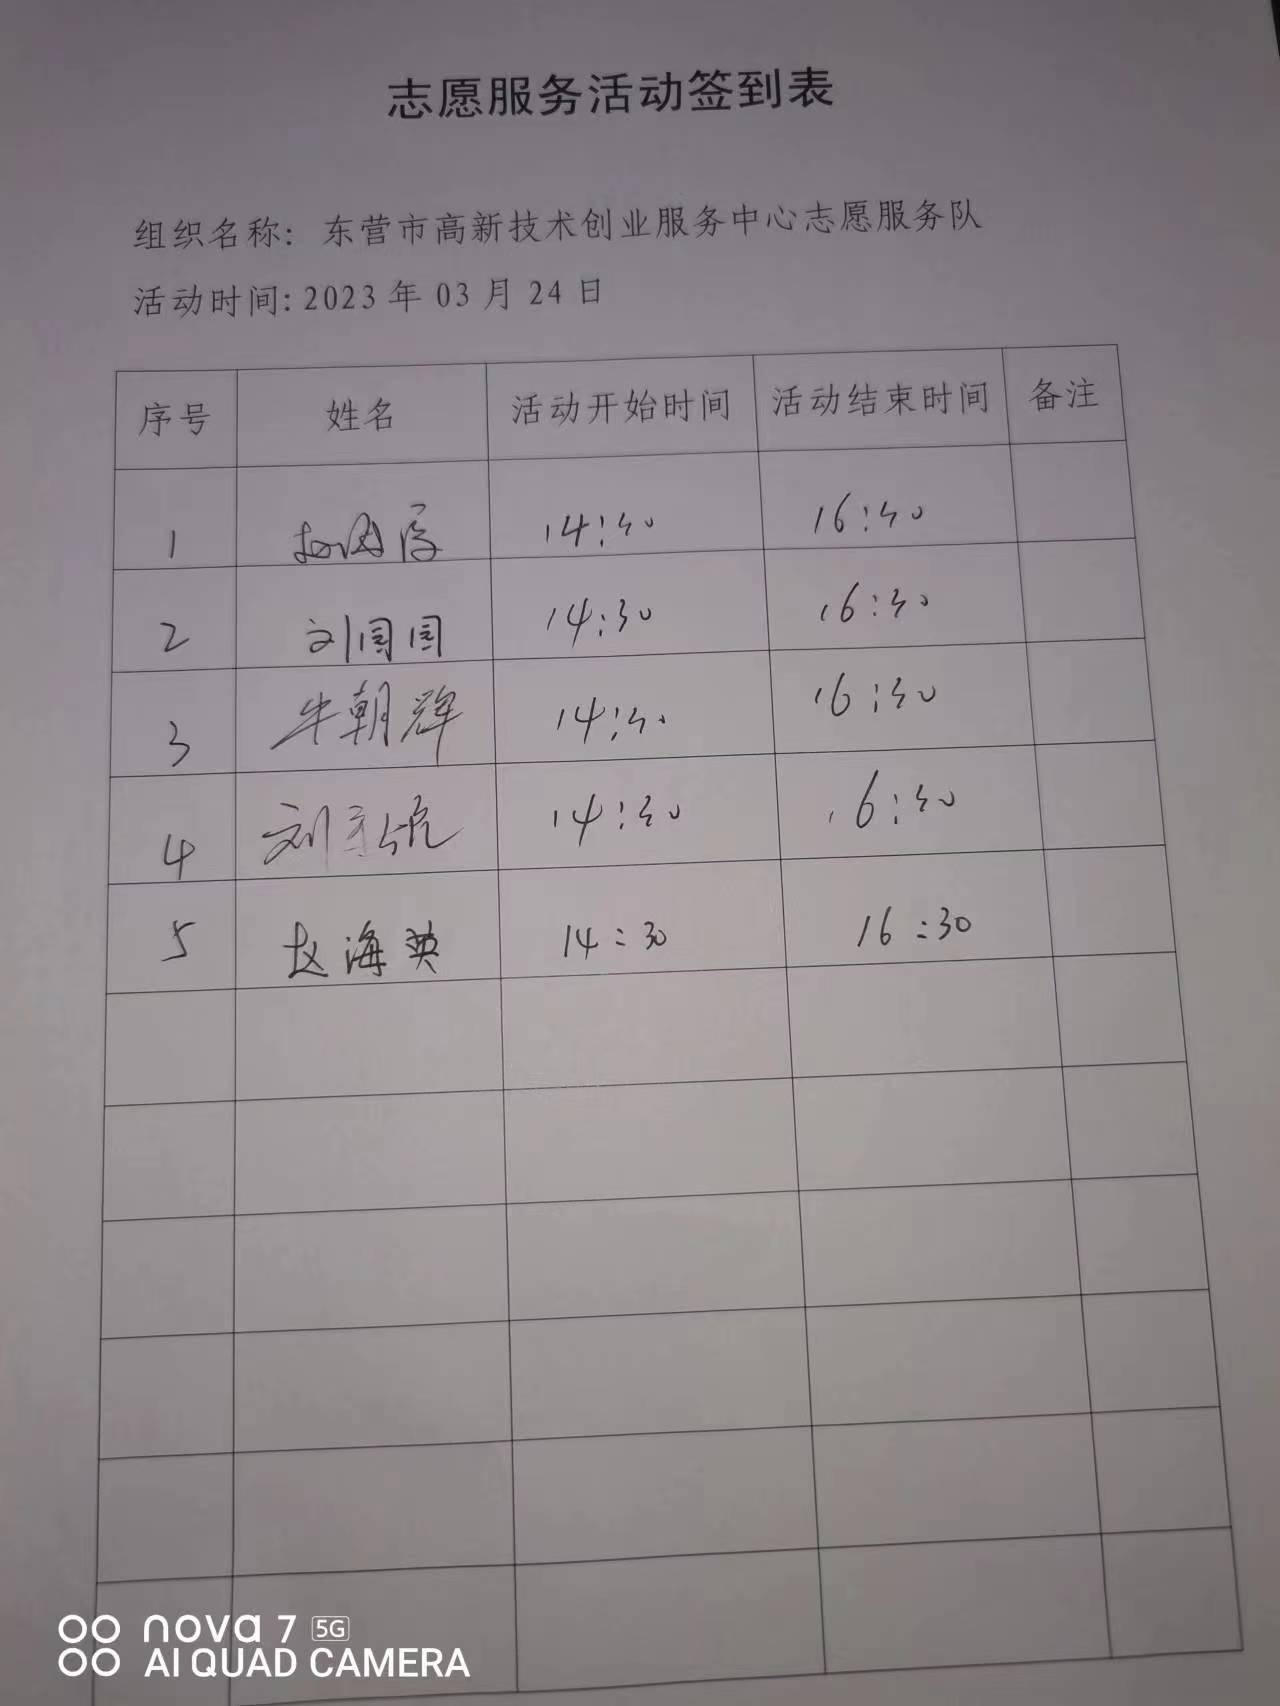 志愿服务活动签到表
组织名称: 东营市高新技术创业服务中心志愿服务队
活动时间: 2023 年 03 月 24 日
序号 姓名 活动开始时间 活动结束时间 备注
1 14:30 16:30
2 刘园园 14:30 16:30
3 牛朝辉 14:30 16:30
4 刘 14:30 16:30
5 赵海英 14:30 16:30
nova 7 5G
AI QUAD CAMERA